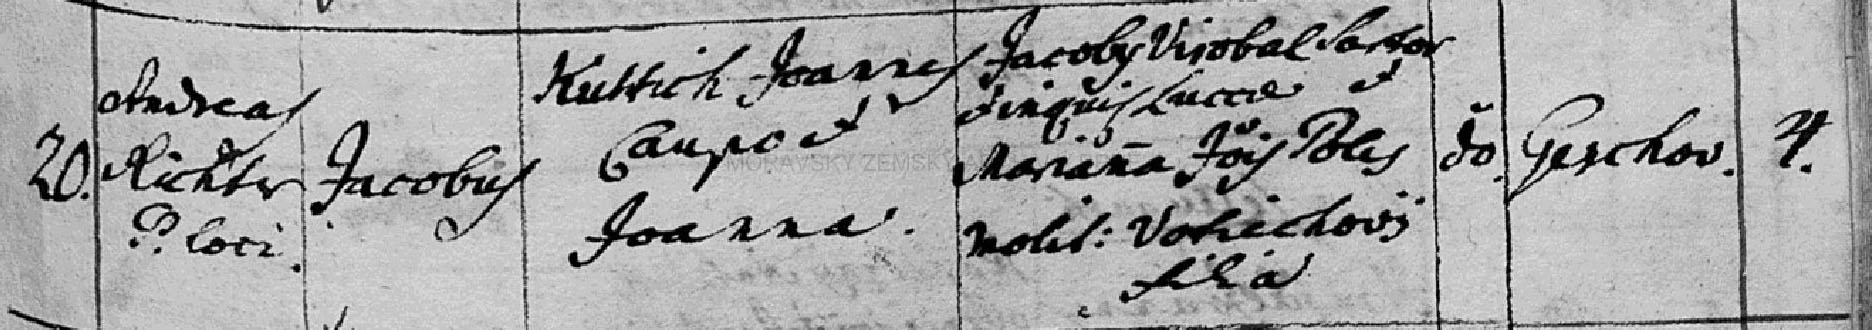 20.
Andreas
Richter
P. loci.
Jacobus
Kuttich Joannes
Caupo et
Joanna.
Jacobg Virobal Sartor
Lucca et
Mariaña Jois Poles
molit: Votiechovij
filia
do.
Geschov.
4.
MORAVSKÝ ZEMSKÝ A